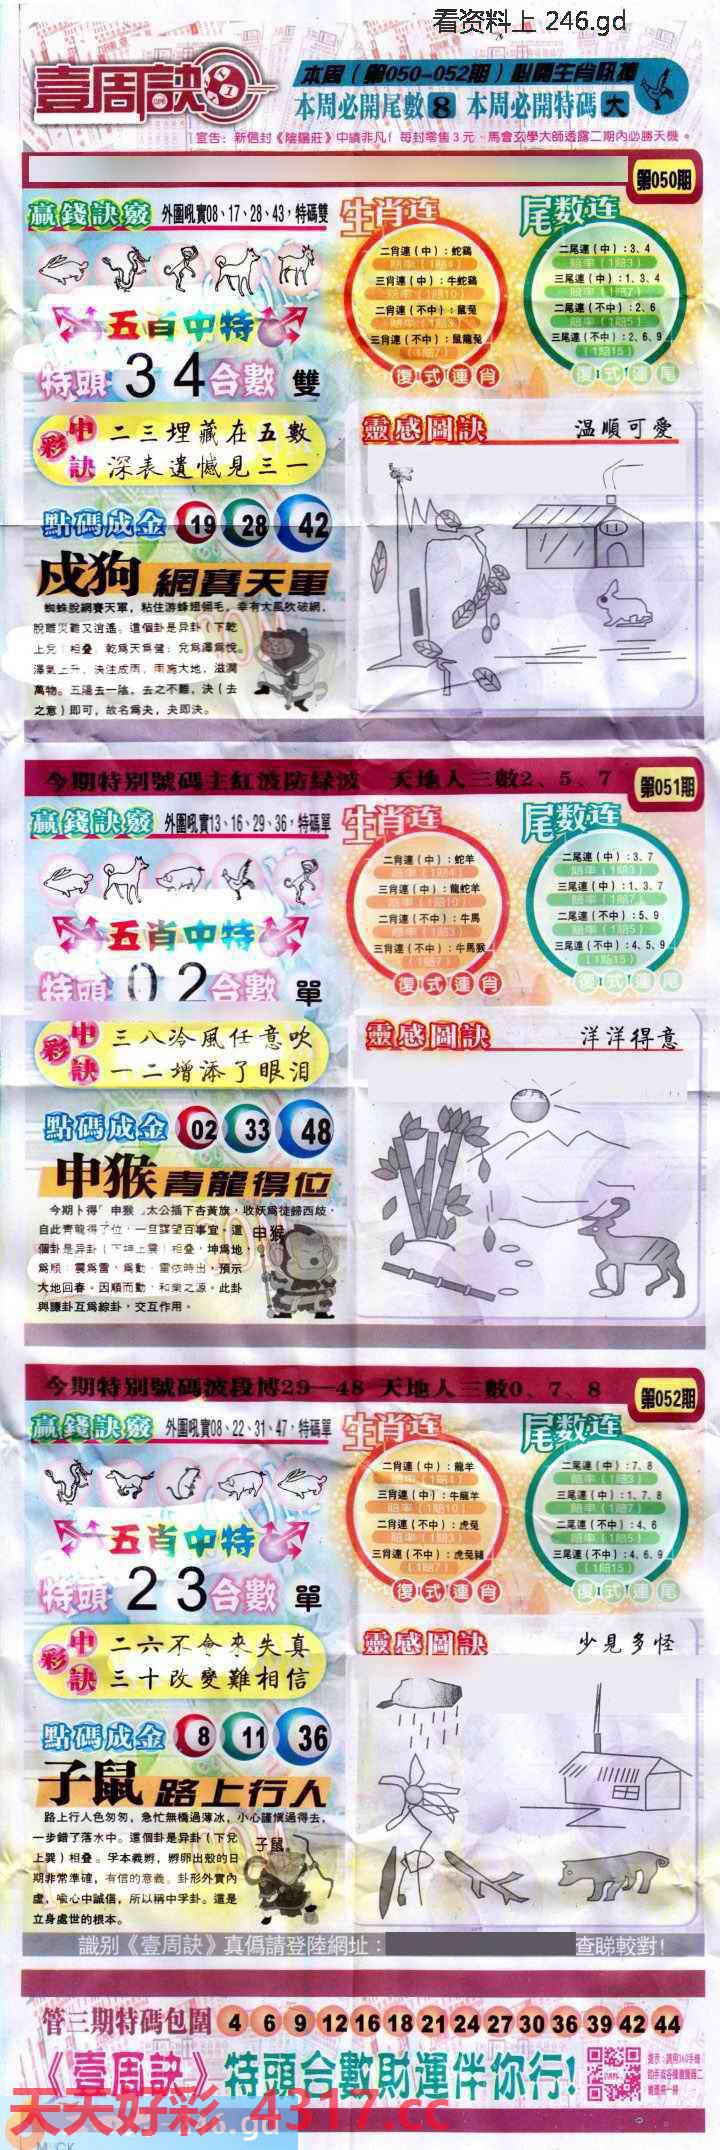 看资料上 246.gd
壹周訣
本周（第050-052期）必開生肖訊攬
本周必開尾數 8 本周必開特碼 大
第050期
贏錢訣竅 外圍吼實08、17、28、43，特碼雙
生肖连
尾数连
二肖連（中）：蛇鷄
賠率（1賠4）
三肖連（中）：牛蛇鷄
賠率（1賠10）
二肖連（不中）：鼠兔
賠率（1賠3）
三肖連（不中）：鼠龍兔
（1賠7）
復式連肖
二尾連（中）：3、4
賠率（1賠3）
三尾連（中）：1、3、4
賠率（1賠7）
二尾連（不中）：2、6
賠率（1賠5）
三尾連（不中）：2、6、9
（1賠15）
復式連尾
五肖中特
特頭 3 4 合數 雙
彩中訣
二三埋藏在五數
深表遺憾見三一
靈感圖訣 温順可愛
點碼成金 19 28 42
戌狗 網賽天軍
蜘蛛脫網賽天軍，粘住游蜂翅翎毛，幸有大風吹破網，
脫離災難又逍遙。這個卦是异卦（下乾
上兌）相叠，乾爲天爲健；兌爲澤爲悅。
澤氣上升，决注成雨，雨施大地，滋潤
萬物。五陽去一陰，去之不難，决（去
之意）即可，故名爲夬，夬即决。
今期特别號碼主紅波防緑波 天地人三數2、5、7
第051期
贏錢訣竅 外圍吼實13、16、29、36，特碼單
生肖连
尾数连
二肖連（中）：蛇羊
賠率（1賠4）
三肖連（中）：龍蛇羊
賠率（1賠10）
二肖連（不中）：牛馬
賠率（1賠3）
三肖連（不中）：牛馬猴
（1賠7）
復式連肖
二尾連（中）：3、7
賠率（1賠3）
三尾連（中）：1、3、7
賠率（1賠7）
二尾連（不中）：5、9
賠率（1賠5）
三尾連（不中）：4、5、9
（1賠15）
復式連尾
五肖中特
特頭 0 2 合數 單
彩中訣
三八冷風任意吹
一二增添了眼泪
靈感圖訣 洋洋得意
點碼成金 02 33 48
申猴 青龍得位
太公插下杏黃旗，收妖爲徒歸西岐，
自此青龍得了位，一旦謀望百事宜。這
個卦是异卦（下坤上震）相叠，坤爲地，
爲順；震爲雷，爲動。雷依時出，預示
大地回春。因順而動，和樂之源。此卦
與謙卦互爲綜卦，交互作用。
申猴
今期特别號碼波段博29—48 天地人三數0、7、8
第052期
贏錢訣竅 外圍吼實08、22、31、47，特碼單
生肖连
尾数连
二肖連（中）：龍羊
賠率（1賠4）
三肖連（中）：牛龍羊
賠率（1賠10）
二肖連（不中）：虎兔
賠率（1賠3）
三肖連（不中）：虎兔豬
（1賠7）
復式連肖
二尾連（中）：7、8
賠率（1賠3）
三尾連（中）：1、7、8
賠率（1賠7）
二尾連（不中）：4、6
賠率（1賠5）
三尾連（不中）：4、6、9
（1賠15）
復式連尾
五肖中特
特頭 2 3 合數 單
彩中訣
二六不會來失真
三十改變難相信
靈感圖訣 少見多怪
點碼成金 8 11 36
子鼠 路上行人
路上行人色匆匆，急忙無橋過薄冰，小心謹慎過得去，
一步錯了落水中。這個卦是异卦（下兌
上巽）相叠。孚本義孵，孵卵出殼的日
期非常準確，有信的意義。卦形外實內
虛，喻心中誠信，所以稱中孚卦。這是
立身處世的根本。
子鼠
識别《壹周訣》真僞請登陸網址： 查睇較對！
管三期特碼包圍 4 6 9 12 16 18 21 24 27 30 36 39 42 44
《壹周訣》特頭合數財運伴你行！
天天好彩 4317.cc